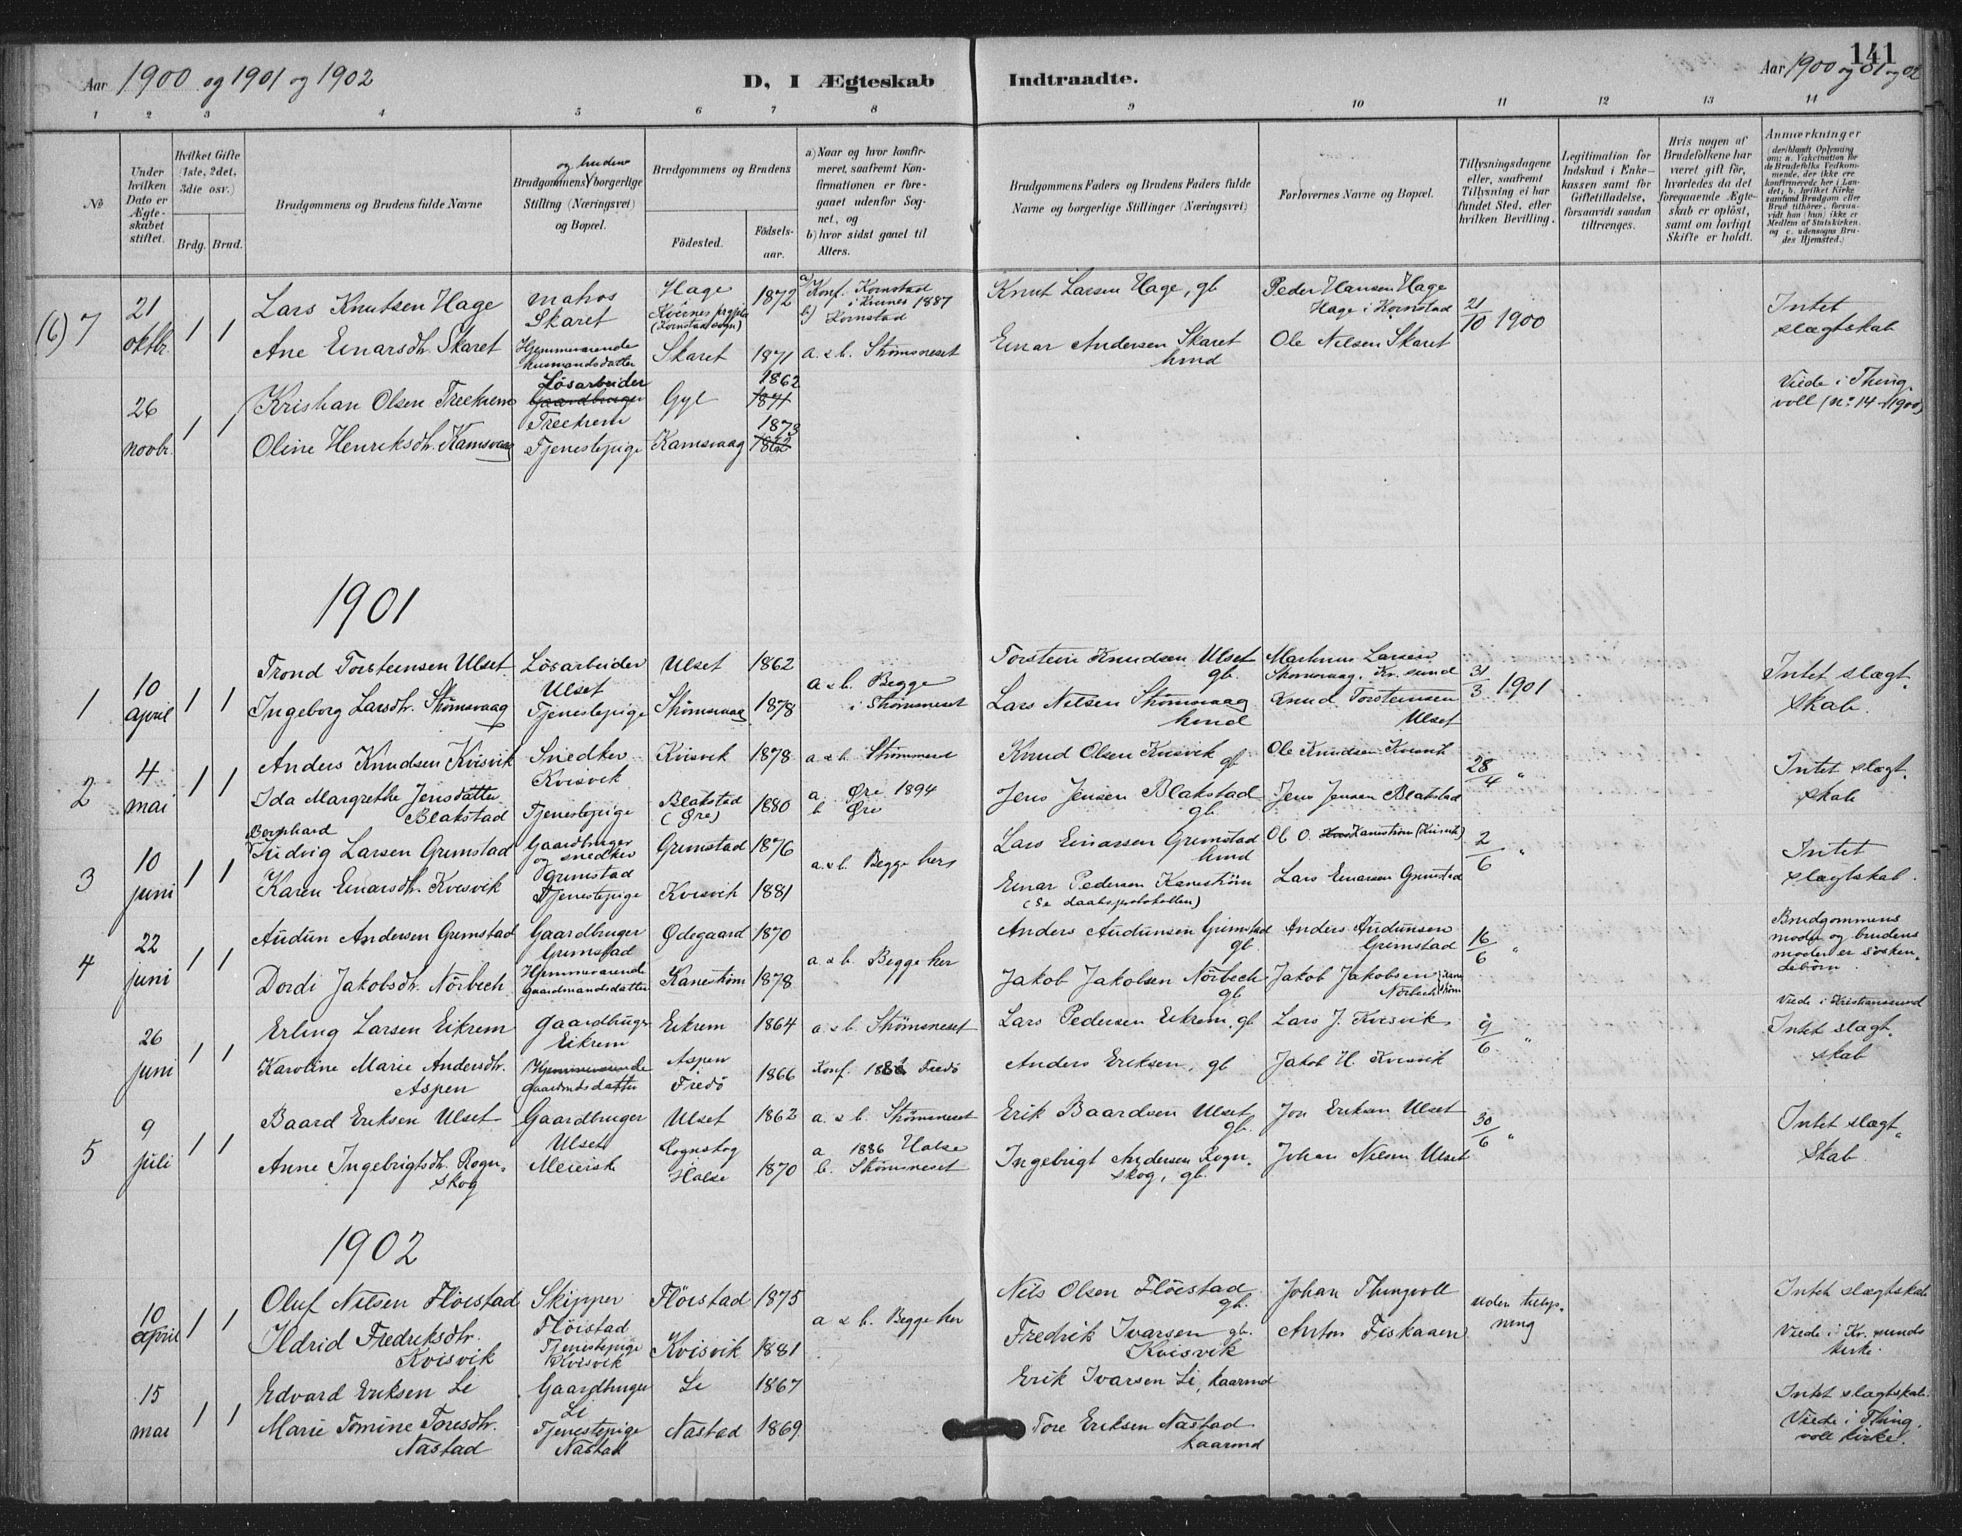 141
Aar 1900 og 1901 og 1902
D, I Ægteskab Indtraadte.
Aar 1900 og 01 og 02
1 2 3 4 5 6 7 8 9 10 11 12 13 14
№
Under hvilken Dato er Ægteskabet stiftet.
Hvilket Gifte (1ste, 2det, 3die osr.)
Brdg. Brud.
Brudgommens og Brudens fulde Navne
og brudens
Brudgommens borgerlige Stilling (Næringsvei) og Bopæl.
Brudgommens og Brudens
Fødested. Fødselsaar.
a) Naar og hvor konfirmeret, saafremt Konfirmationen er foregaaet udenfor Sognet, og
b) hvor sidst gaaet til Alters.
Brudgommens Faders og Brudens Faders fulde Navne og borgerlige Stillinger (Næringsvei)
Forlovernes Navne og Bopæl.
Tillysningsdagene eller, saafremt Tillysning ei har fundet Sted, efter hvilken Bevilling.
Legitimation for Indskud i Enkekassen samt for Giftetilladelse, forsaavidt saadan tiltrænges.
Hvis nogen af Brudefolkene har været gift før, hvorledes da det foregaaende Ægteskab er opløst, samt om lovligt Skifte er holdt.
Anmærkninger
(deriblandt Oplysning om: a. Vakcination for de Brudefolks Vedkommende, der ikke ere konfirmerede her i Landet, b. hvilket Kirkesamfund Brudgom eller Brud tilhører, forsaavidt han (hun) ikke er Medlem af Statskirken, og c. udensogns Brudes Hjemsted.)
(6) 7 21 oktbr. 1 1
Lars Knutsen Hage matros Skaret Hage Kvernes prgjeld (Kornstad sogn) 1872 a) Konf. Kornstad i Kvernes 1887 b) Kornstad Knut Larsen Hage, gb Peder Hansen Hage Hage i Kornstad 21/10 1900 Intet slægtskab
Ane Einarsdtr. Skaret Hjemmeværende husmandsdatter Skaret 1871 a & b. Strømsneset Einar Andersen Skaret husmd Ole Nilsen Skaret
26 novbr. 1 1
Kristian Olsen Treekrem Løsarbeider Gaardbruger Treekrem Gyl 1862 1871 Viede i Thingvoll (no. 14 - 1900)
Oline Henriksdtr. Kamsvaag Tjenestepige Kamsvaag 1873 1862
1901
1 10 april 1 1
Trond Torsteinsen Ulset Løsarbeider Ulset Ulset 1862 a & b. Begge i Strømsneset Torstein Knudsen Ulset gb. Martinus Larsen Strømsvaag, Kr.sund 31/3 1901 Intet slægtskab.
Ingeborg Larsdtr. Strømsvaag Tjenestepige Strømsvaag 1878 Lars Nilsen Strømsvaag husmd Knud Torsteinsen Ulset
2 4 mai 1 1
Anders Knudsen Kvisvik Snedker Kvisvik Kvisvik 1878 a & b. Strømsneset Knud Olsen Kvisvik gb Ole Knudsen Kvisvik 28/4 " Intet slægtskab
Ida Margrethe Jensdatter Blakstad Tjenestepige Blakstad (Øre) 1880 a. Øre 1894 b Øre Jens Jensen Blakstad gb. Jens Jensen Blakstad
3 10 juni 1 1
Bernhard Ludvig Larsen Grimstad Gaardbruger og snedker Grimstad Grimstad 1876 a & b. Begge her Lars Einarsen Grimstad husmd Ol O. Kanestrøm (Kvisvik) 2/6 " Intet slægtskab.
Karen Einarsdtr. Kvisvik Tjenestepige Kvisvik 1881 Einar Pedersen Kanestrøm (Se daabsprotokollen) Lars Einarsen Grimstad
4 22 juni 1 1
Audun Andersen Grimstad Gaardbruger Grimstad Ødegaard 1870 a & b. Begge her Anders Audunsen Grimstad gb. Anders Audunsen Grimstad 16/6 " Brudgommens moder og brudens moder er søskendebørn.
Dordi Jakobsdtr. Nörbech Hjemmeværende Gaardmandsdatter Kanestrøm 1878 Jakob Jakobsen Nörbech gb Jakob Jakobsen Nörbech Kanestrøm
26 juni 1 1
Erling Larsen Eikrem gaardbruger Eikrem Eikrem 1864 a & b. Strømsneset Lars Pedersen Eikrem, gb Lars J. Kvisvik 9/6 " Viede i Kristianssund Intet slægtskab
Karoline Marie Andersdtr. Aspen Hjemmeværende gaardmdsdatter Aspen Fredö 1866 Konf. Fredö Anders Eriksen, gb Jakob H. Kvisvik
5 9 juli 1 1
Baard Eriksen Ulset Gaardbruger Ulset Ulset 1862 a. & b. Strømsneset Erik Baardsen Ulset gb. Jon Eriksen Ulset 30/6 " Intet slægtskab.
Anne Ingebrigtsdtr. Rognskog Meierisk Rognskog Halse 1870 a 1886 Halse b. Strømsneset Ingebrigt Andersen Rognskog, gb. Johan Nilsen Ulset
1902
10 april 1 1
Oluf Nilsen Flöistad Skipper Flöistad Flöistad 1875 a & b. Begge her Nils Olsen Flöistad gb. Johan Thingvoll uden tillysning Intet slægtskab
Ildrid Fredriksdtr. Kvisvik Tjenestepige Kvisvik Kvisvik 1881 Fredrik Ivarsen gb. Kvisvik Anton Fiskaaen Viede i Kr.sunds kirke.
15 mai 1 1
Edvard Eriksen Li Gaardbruger Li Li 1867 Erik Ivarsen Li, kaarmd Intet slægtskab.
Marie Tomine Toresdtr. Nastad Tjenestepige Nastad Nastad 1869 Tore Eriksen Nastad kaarmd Viede i Thingvoll kirke.